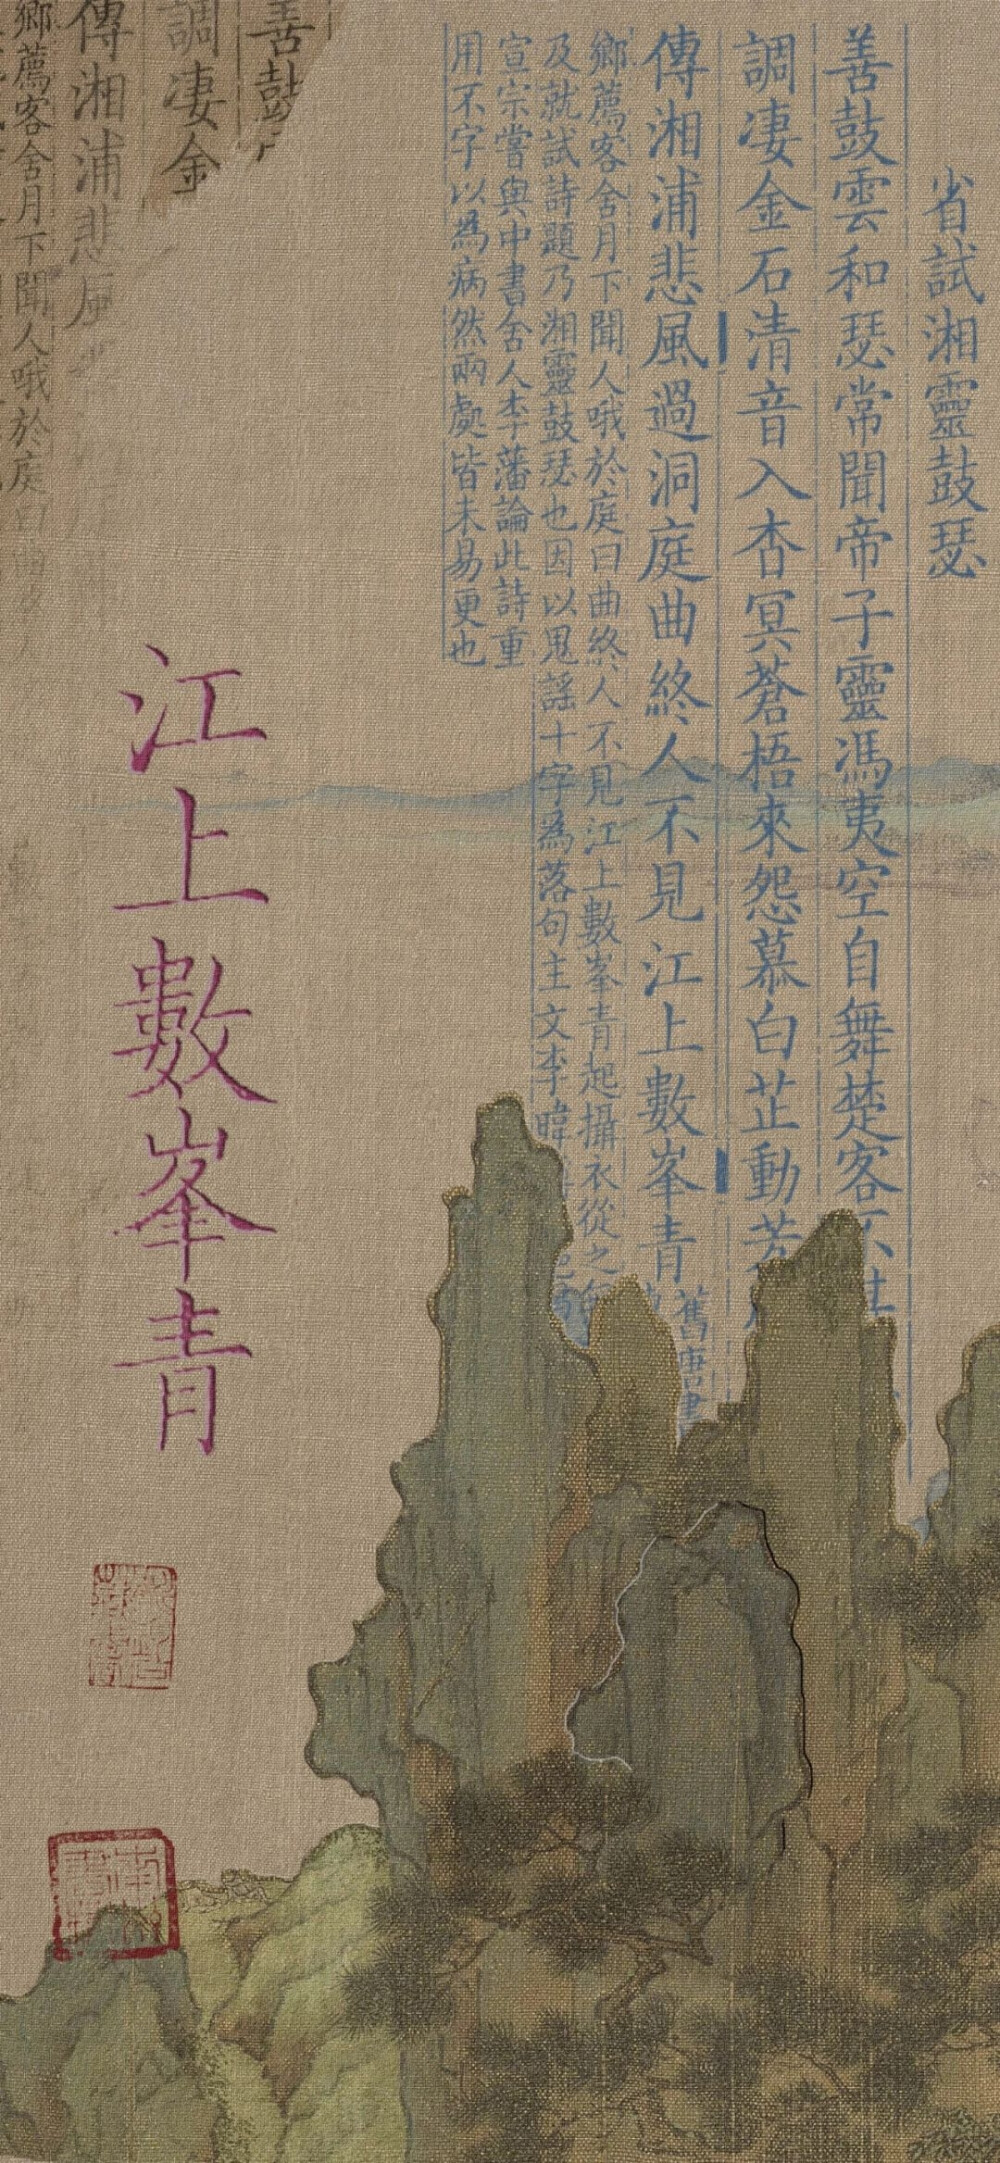 省試湘靈鼓瑟
善鼓雲和瑟常聞帝子靈馮夷空自舞楚客不
調凄金石清音入杳冥蒼梧來怨慕白芷動芳
傳湘浦悲風過洞庭曲終人不見江上數峯青
舊唐書
鄉薦客舍月下聞人哦於庭曰曲終人不見江上數峯青起攝衣從之
及就試詩題乃湘靈鼓瑟也因以鬼謠十字為落句主文李暐
宣宗嘗與中書舍人李藩論此詩重
用不字以為病然兩處皆未易更也
善鼓
調凄金
傳湘浦悲風
江上數峯青
鄉薦客舍月下聞人哦於庭曰曲終人